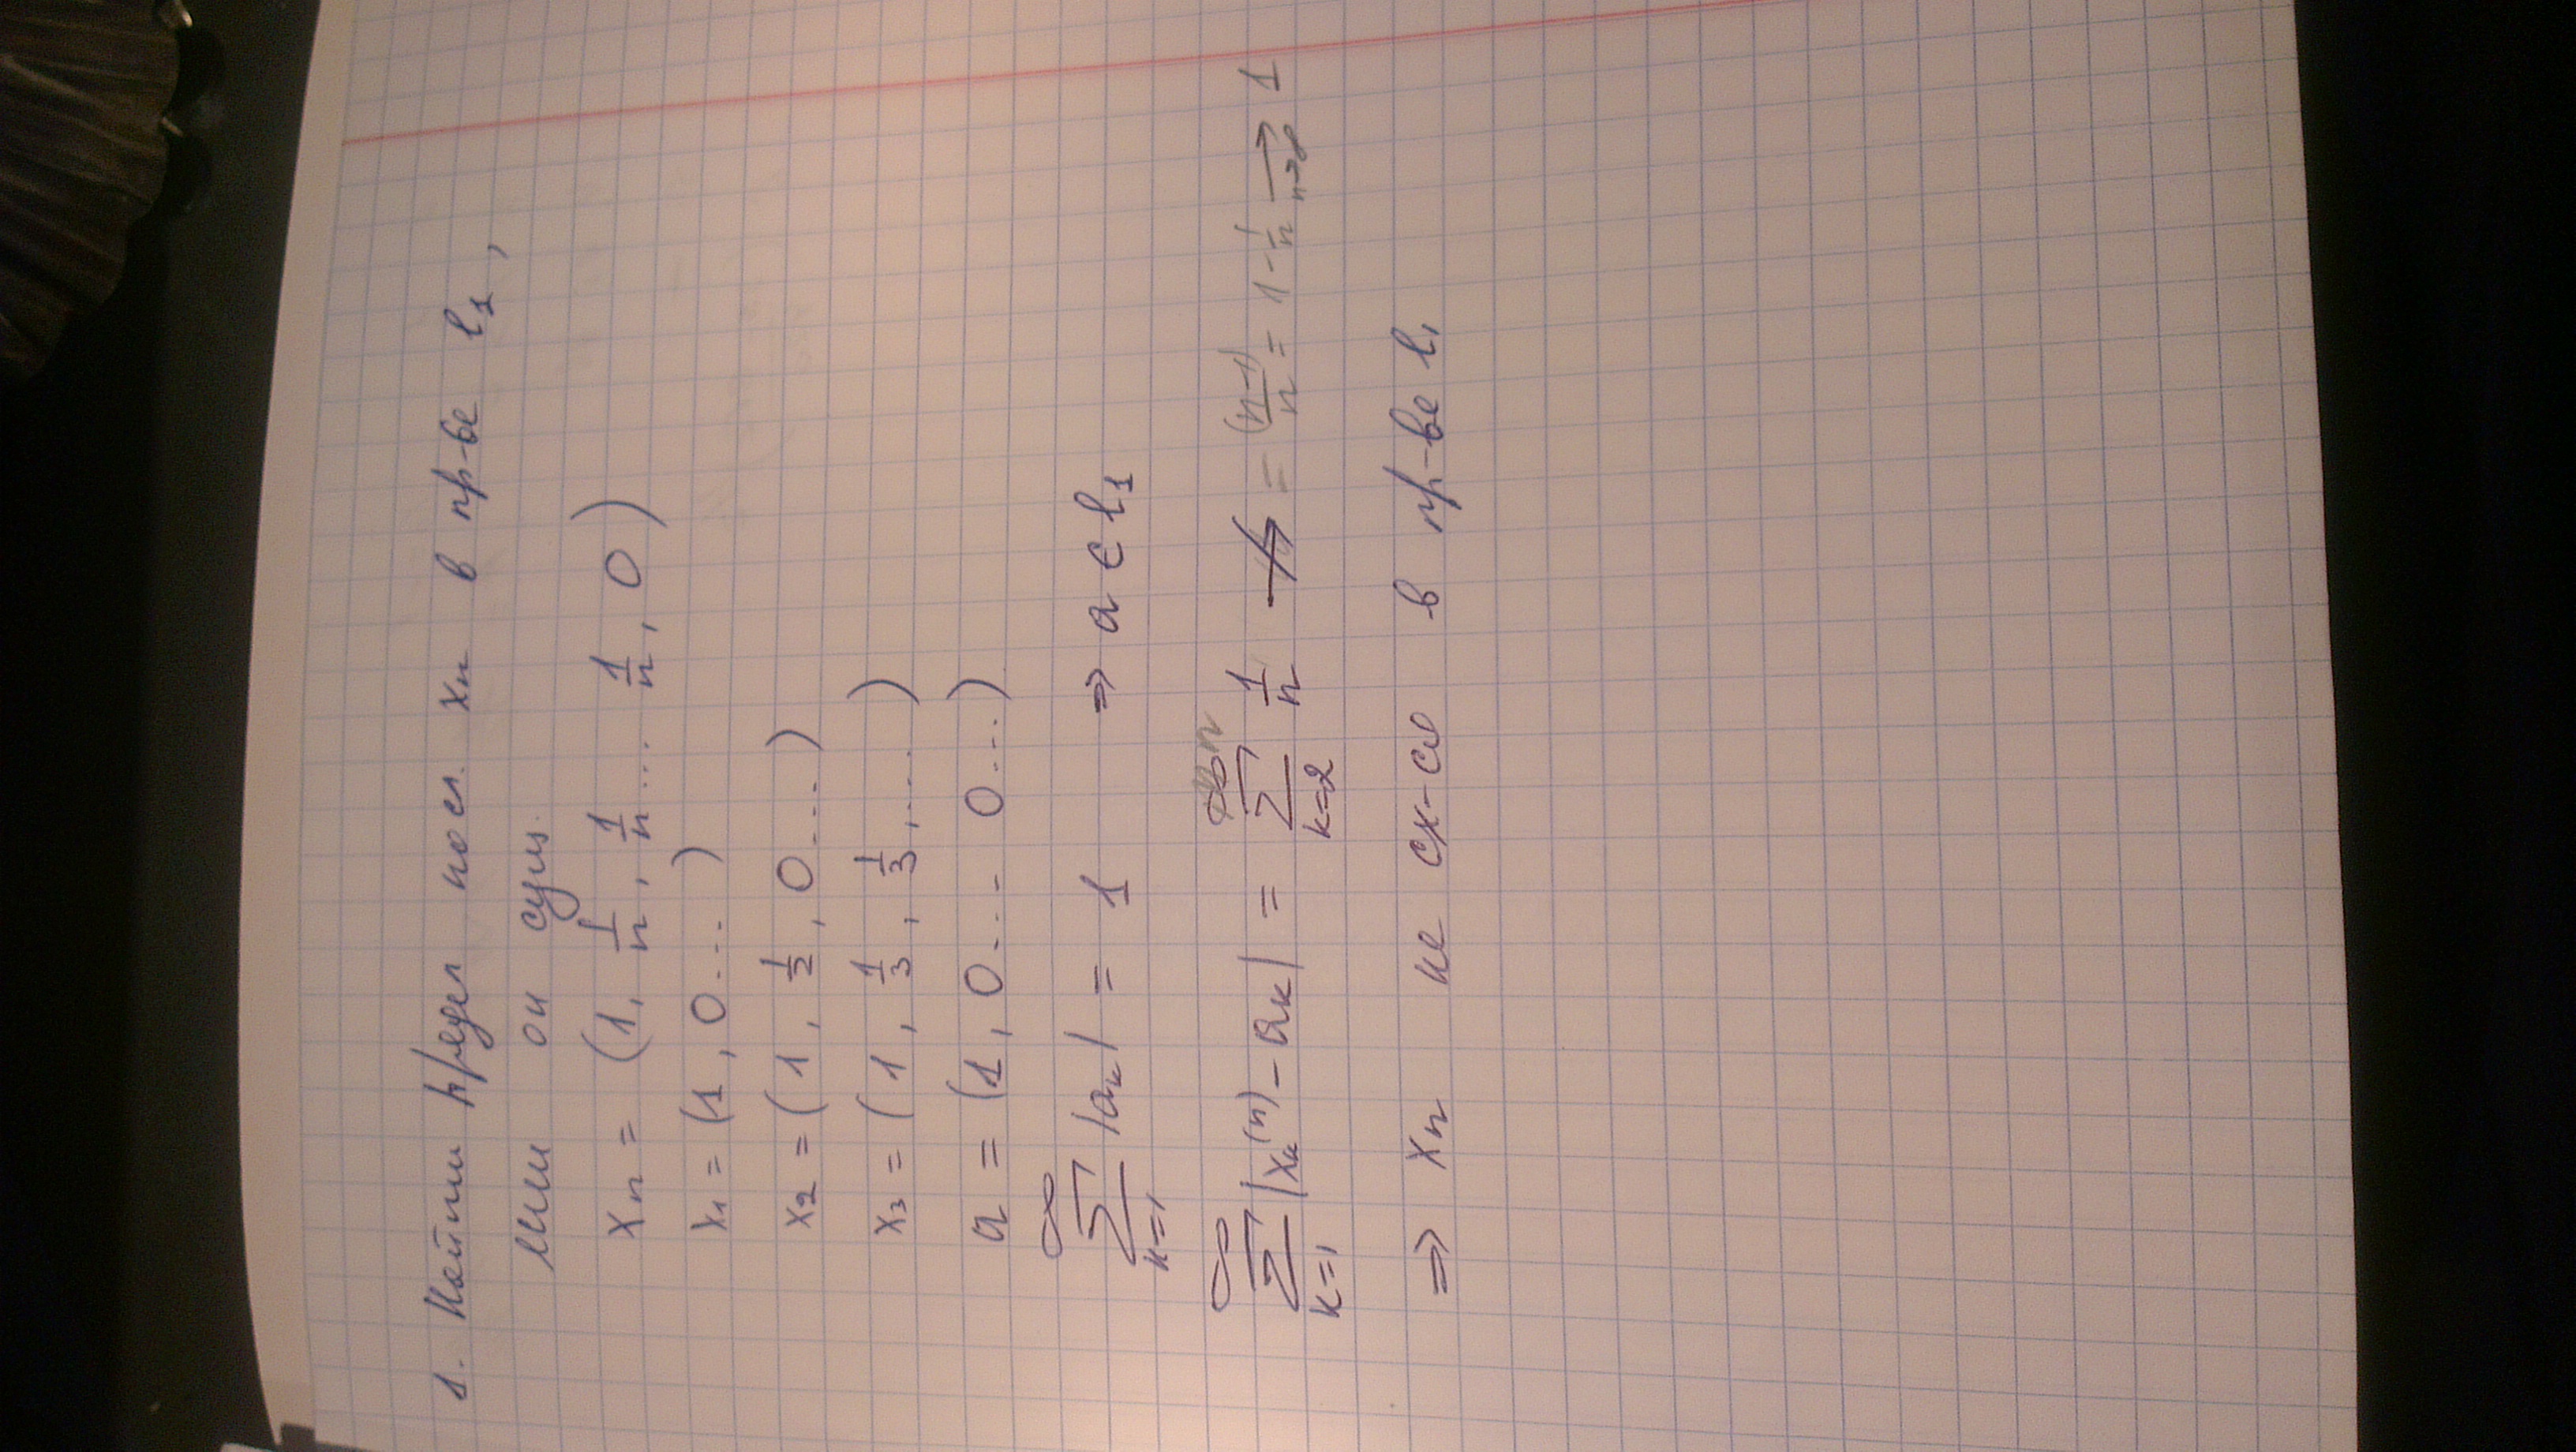 1. Найти предел посл. xₙ в пр-ве l₁,
если он сущ.
xₙ = (1, 1/n, 1/n, 1/n ... 1/n, 0)
x₁ = (1, 0...)
x₂ = (1, 1/2, 0....)
x₃ = (1, 1/3, 1/3, ....)
a = (1, 0... 0...)
∑_{k=1}^{∞} |aₖ| = 1 ⇒ a ∈ l₁
∑_{k=1}^{∞} |xₖ⁽ⁿ⁾ - aₖ| = ∑_{k=2}^{n} 1/n = (n-1)/n = 1 - 1/n →_{n→∞} 1
⇒ xₙ не сх-ся в пр-ве l₁